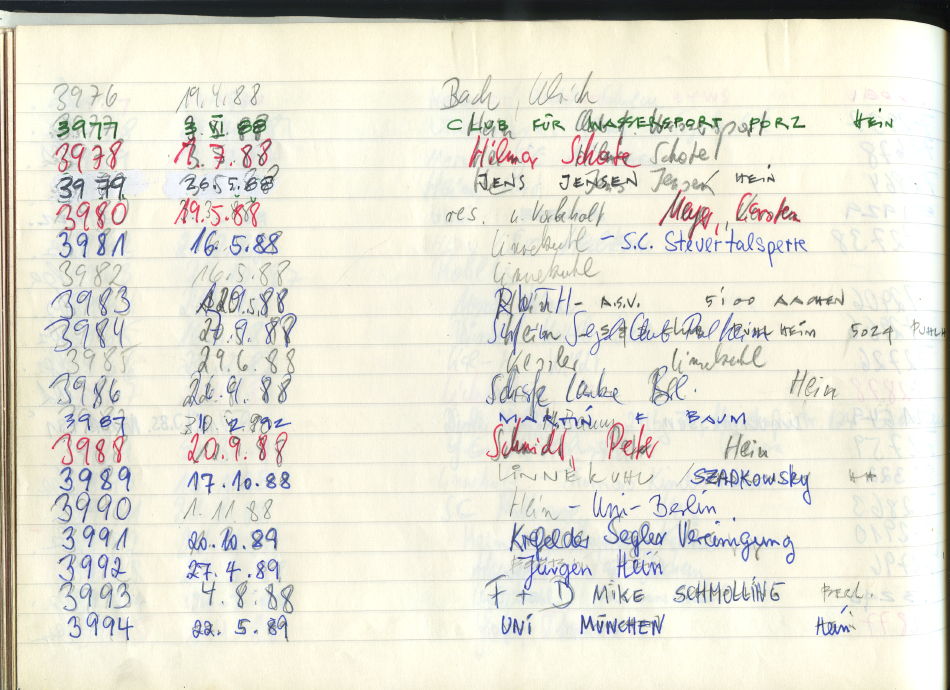 3976 19.4.88 Bach, Ulrich
3977 3.VI.88 CLUB FÜR WASSERSPORT PORZ HEIN
3978 1.7.88 Hilmar Schotel
3979 26.5.88 JENS JENSEN HEIN
3980 19.5.88 res. u. Vorbehalt Meyer, Kersten
3981 16.5.88 Linnekuhl - S.C. Stevertalsperre
3982 16.5.88 Linnekuhl
3983 A.S.V. 5100 AACHEN
3984 20.9.88 HEIN 5024
3985 29.6.88 Linnekuhl
3986 Hein
3987 2.92 MARTIN BAUM
3988 20.9.88 Schmidt, Peter Hein
3989 17.10.88 LINNEKUHL / SZADKOWSKY
3990 1.11.88 Hein - Uni-Berlin
3991 20.10.89 Krefelder Segler Vereinigung
3992 27.4.89 Jürgen Hein
3993 4.8.88 F + D MIKE SCHMOLLING BERL.
3994 22.5.89 UNI MÜNCHEN Hein